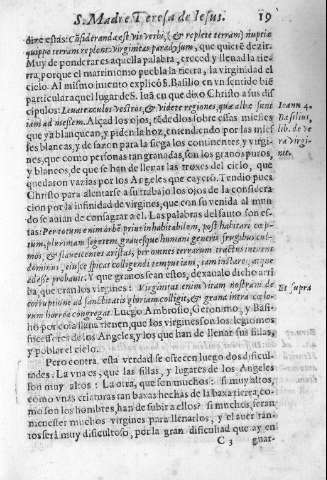 S. Madre Teresa de Iesus. 19
diré estas: Cõsideranda est vis verbi, & replete terram) nuptiæ
quippe terram replent: virginitas paradysum, que quiere dezir.
Muy de ponderar es aquella palabra, creced y llenad la tie
rra, porque el matrimonio puebla la tierra, la virginidad el
cielo. Al mismo intento explicó S. Basilio en vn sentido biē
particular aquel lugar de S. Iuã en que dixo Christo a sus dis
cipulos: Leuate oculos vestros, & videte regiones, quia albæ sunt
iam ad messem. Alçad los ojos, todos sobre essas miesses
que ya blanquean, y piden la hoz, entendiendo por las mies
ses blancas, y de sazon para la siega los continentes, y virgi-
nes, que como personas tan granadas, son los granos puros,
y blancos, de que se han de llenar las troxes del cielo, que
quedaron vazias por los Angeles que cayerõ. Tendio pues
Christo para alentarse a su trabajo los ojos de la considera
cion por la infinidad de virgines, que con su venida al mun
do se auian de consagrar a el. Las palabras del santo son es-
tas: Per totum enim orbē prius inhabitabilem, post habitare cœp-
tum, plurimam segetem, grauesque humani generis frugibus cul-
mos, & flauescentes aristas, per omnes terrarum tractus intuens
dominus, eiusce spicas colligendi tempus iam, iam instare, atque
adesse probauit. Y que granos sean estos, dexaualo dicho arri
ba, que eran los virgines: Virginitas enim vitam nostram de
corruptione ad sanctitatis gloriam colligit, & grana intra cœlo-
rum horrea congregat. Luego Ambrosio, Geronymo, y Basi-
lio por cosa llana tienen, que los virgines son los legitimos
sucessores de los Angeles, y los que han de llenar sus sillas,
y poblar el cielo.
Pero contra esta verdad se ofrecen luego dos dificul-
tades. La vna es; que las sillas, y lugares de los Angeles
son muy altos: La otra, que son muchos: si muy altos,
como vnas criaturas tan baxas hechas de la baxa tierra, co-
mo son los hombres, han de subir a ellos? si muchos, seran
menester muchos virgines para llenarlos, y el auer tan-
tos será muy dificultoso, por la gran dificultad que ay en
C 3 guar-
Ioann 4.
Basilius,
lib. de ve
ra virgi-
nit.
Et supra